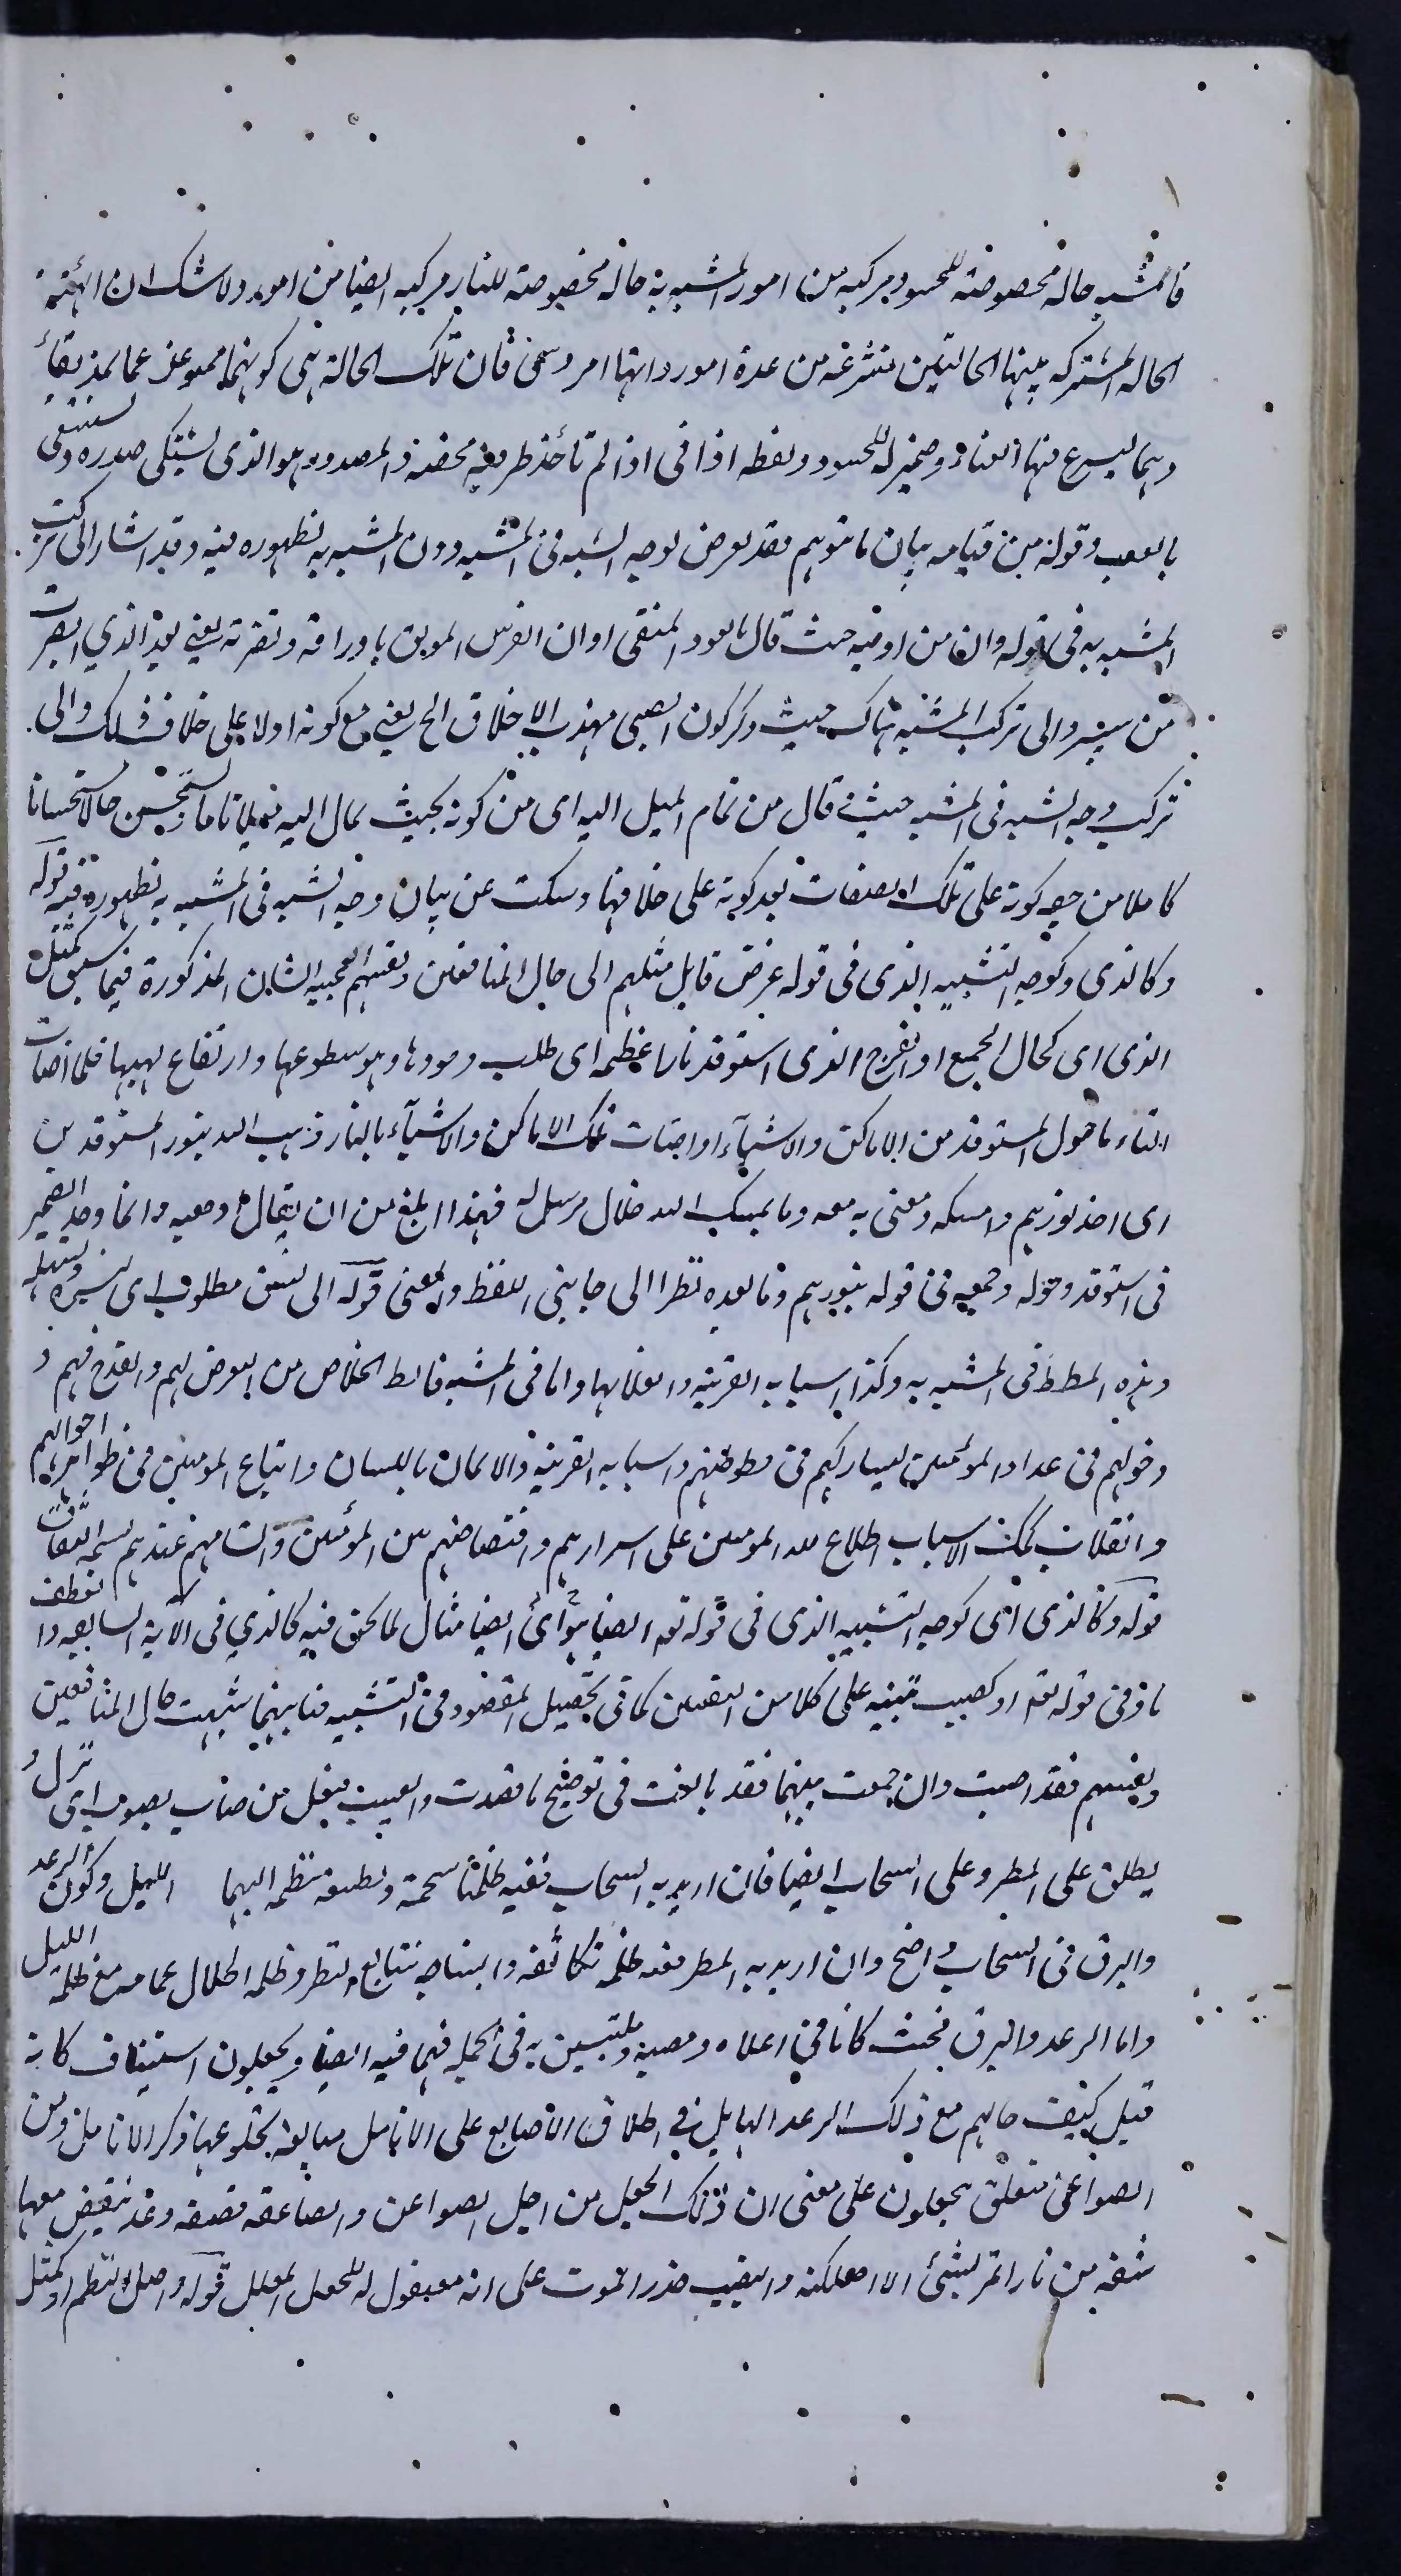 فالمشبه حالة مخصوصة للحسود مركبه من امور المشبه به حالة مخصوصة للنار مركبه ايضا من امور ولا شك ان الهيئة
الحالة المشتركه بينها الحالتين منتزعه من عدة امور وانها امر وهمى فان تلك الحالة هى كونهما ممنوعين عما يمد بقاء
وهما ليسرع فيها الفناء وضمير له للحسود ولفظه اذا فى اذا لم تأخذ ظرفية محضه والمصدور هو الذى يشتكى صدره ويستشفى
بالعيب وقوله من قيامه بيان ما توهم فقد تعرض لوجه الشبه فى المشبه دون المشبه به لظهوره فيه وقد اشار الى تركيب
المشبه به فى قوله وان من ادبته حيث قال كالعود المسقى اوان الغرس المونق باوراقه ونضرته يعنى بعد الذي ابصرت
من يبس والى تركب المشبه هناك حيث ذكر كون الصبى مهذب الاخلاق الخ يعنى مع كونه اولا على خلاف ذلك والى
تركيب وجه الشبه فى المشبه حيث قال من تمام الميل اليه اى من كونه بحيث يمال اليه ميلا تاما ويستحسن حاله استحسانا
كاملا من جهه كونه على تلك الصفات بعد كونه على خلافها وسكت عن بيان وجه الشبه فى المشبه به لظهوره فيه قوله
وكالذى وكوجه التشبيه الذى فى قوله غرض قايل مثلهم اى حال المنافقين وقصتهم العجيبه الشان المذكورة فيما سبق كمثل
الذى اى كحال الجمع او الفوج الذى استوقد نارا عظيمه اى طلب وقودها وهو سطوعها وارتفاع لهيبها فلما اضاءت
النار ما حول المستوقد من الاماكن والاشيآء او اضاءت تلك الاماكن والاشيآء بالنار ذهب الله بنور المستوقدين
اى اخذ نورهم وامسكه ومضى به معه وما يمسك الله فلا مرسل له فهذا ابلغ من ان يقال اذهبه وانما وحد الضمير
فى استوقد وحوله وجمعه فى قوله بنورهم وما بعده نظرا الى جانبى اللفظ والمعنى قوله الى تسنى مطلوب اى تيسره وتسهله
وهذه المطمع فى المشبه به وكذا اسبابه القريبه وانقلابها واما فى المشبه فالمطمع الخلاص من التعرض لهم والقدح فيهم و
دخولهم فى عداد المؤمنين ليشاركهم فى حظوظهم واسبابه القريبة والايمان باللسان واتباع المومنين فى ظواهر احوالهم
وانقلاب تلك الاسباب اطلاع الله المومنين على اسرارهم وافتضاحهم بين المؤمنين واتسامهم عندهم بسمة النفاق
قوله وكالذى اى كوجه التشبيه الذى فى قوله تعه ايضا هو اى ايضا مثال لما نحن فيه كالذي فى الآية السابقه والعطف
باو فى قوله تعه او كصيب تنبيه على ان كلا من القصتين كاف فى تحصيل المقصود من التشبيه فبايهما شبهت حال المنافقين
وقصتهم فقد اصبت وان جمعت بينهما فقد بالغت فى توضيح ما قصدت والصيب فيعل من صاب يصوب اى نزل و
يطلق على المطر وعلى السحاب ايضا فان اريد به السحاب ففيه ظلمتا سحمته وتطبيقه منظمه اليهما الليل وكون الرعد
والبرق فى السحاب واضح وان اريد به المطر ففيه ظلمة تكاثفه وانتساجه بتتابع القطر وظلمة اظلال غمامه مع ظلمة الليل
واما الرعد والبرق فحيث كانا فى اعلاه ومصبه وملتبسين به فى الجملة فهما فيه ايضا ويجعلون استيناف كانه
قيل كيف حالهم مع ذلك الرعد الهايل وفي اطلاق الاصابع على الانامل مبالغة يخلو عنها ذكر الانامل ومن
الصواعق متعلق يجعلون على معنى ان ذلك الجعل من اجل الصواعق والصاعقه قصفه رعد تنقض معها
شقه من نار لا تمر بشئ الا اهلكته وانتصب حذر الموت على انه مفعول له للجعل المعلل قوله واصل النظم او كمثل